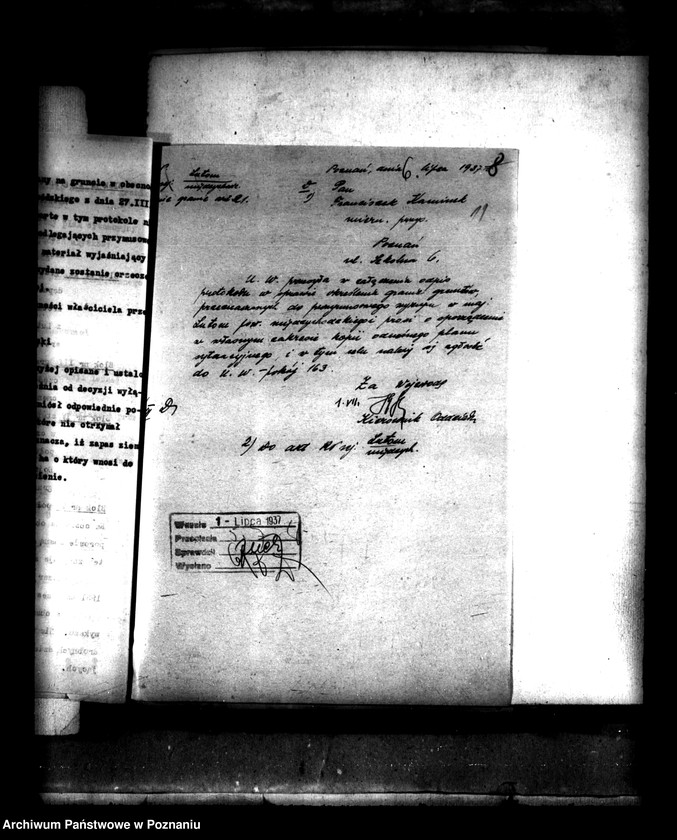 ny na gruncie w obecno
ódzkiego z dnia 27.III
arte w tym protokole n
odlegających przymusow
materiał wyjaśniający
wydane zostanie orzecze
ności właściciela prze
żej opisane i ustalo
nia od decyzji wyłą-
niósł odpowiednie po-
które nie otrzymał
nacza, iż zapas ziem
ha o który wnosi do
ienie.
Poznań, dnia 6. lipca 1937 8
Lutom
międzychodz.
Pan
1)
Franciszek
miern. przys.
11
Poznań
ul. Szkolna 6.
U. W. przesyła w załączeniu odpis
protokołu w sprawie określenia granic gruntów,
przeznaczonych do przymusowego wykupu, w maj.
Lutom pow. międzychodzkiego i prosi o sporządzenie
we własnym zakresie kopii odnośnego planu
sytuacyjnego i w tym celu należy się zgłosić
do U. W. - pokój 163
Za Wojewodę
1.VII.
Kierownik Oddziału
2) Do akt
Lutom
międzych.
Weszło 1 - Lipca 1937
Przepisała
Sprawdził
Wysłano
Archiwum Państwowe w Poznaniu